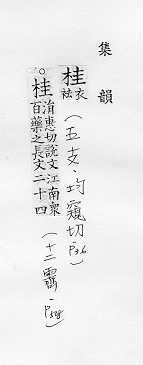 集韻
桂衣袪(五支·均窺切P36)
○桂涓惠切說文江南眾百藥之長文二十四(十二霽·P508)